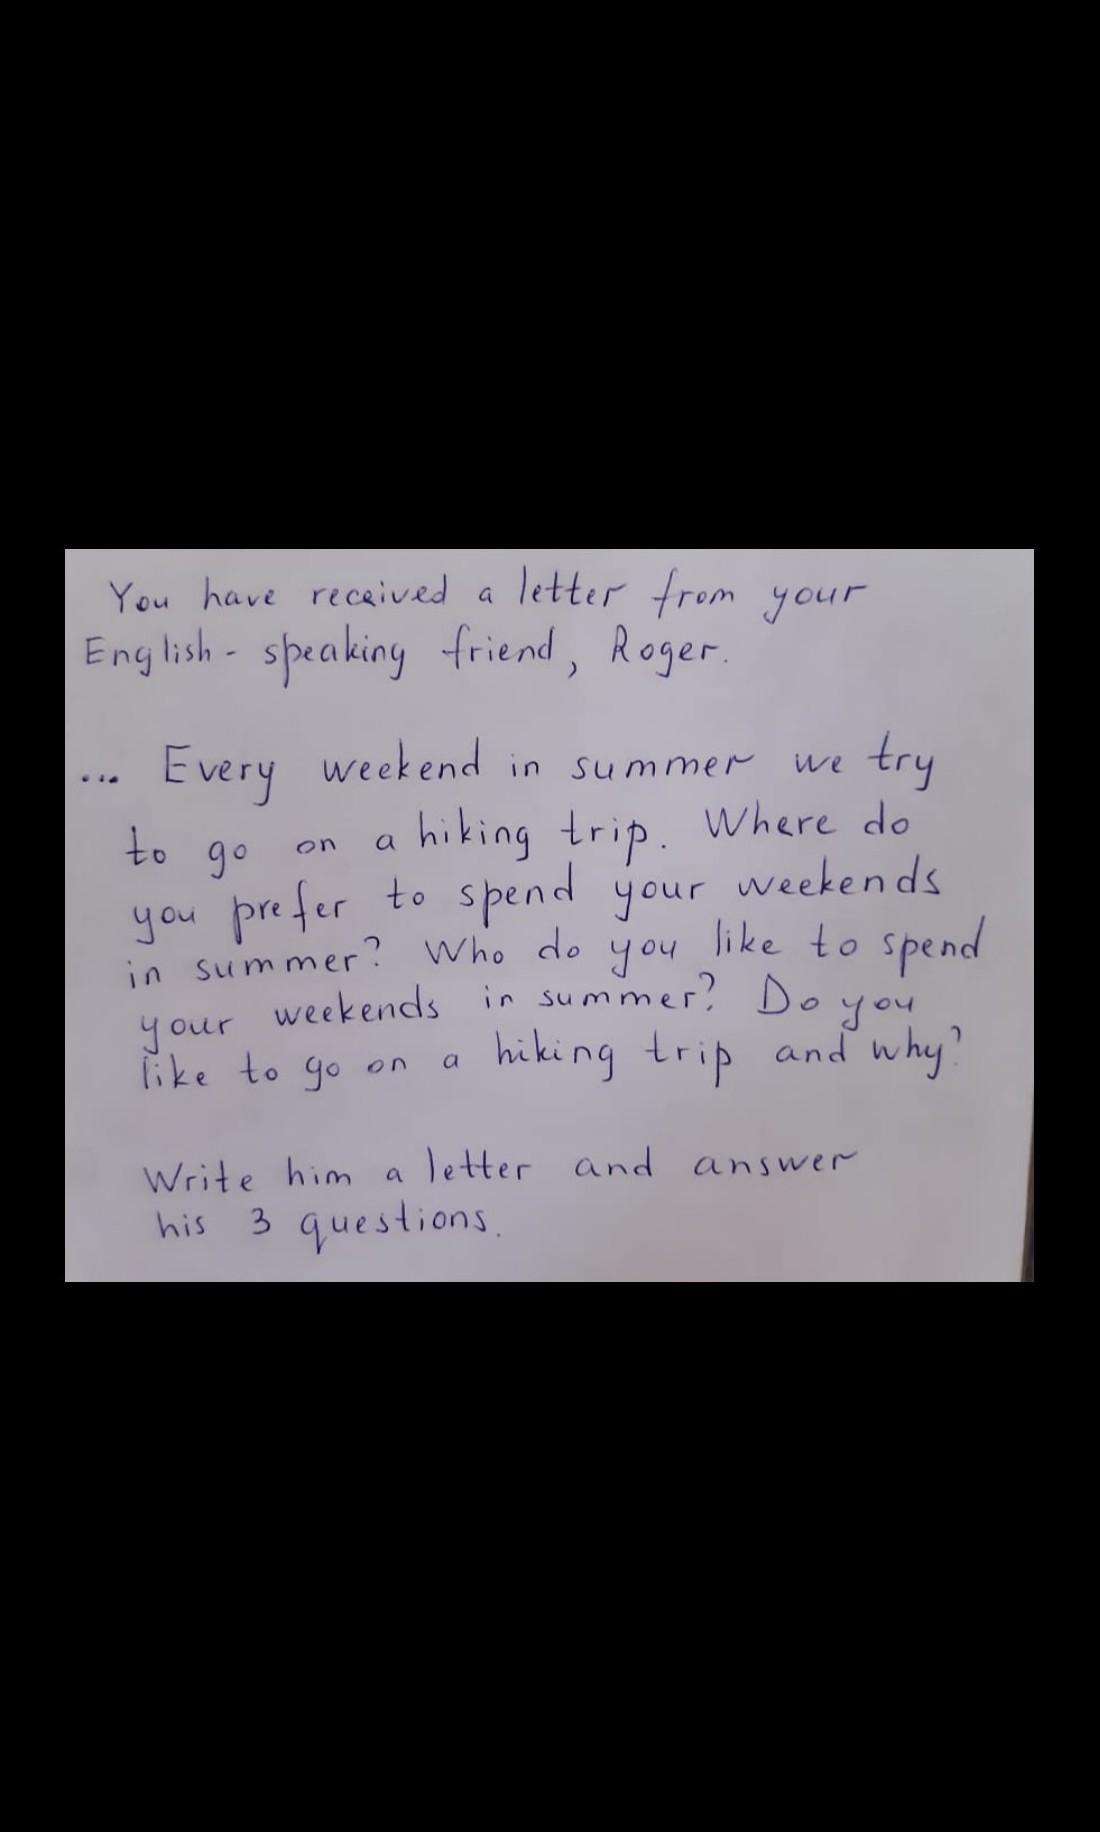 You have received a letter from your
English - speaking friend, Roger.
... Every weekend in summer we try
to go on a hiking trip. Where do
you prefer to spend your weekends
in summer? Who do you like to spend
your weekends in summer? Do you
like to go on a hiking trip and why?
Write him a letter and answer
his 3 questions.